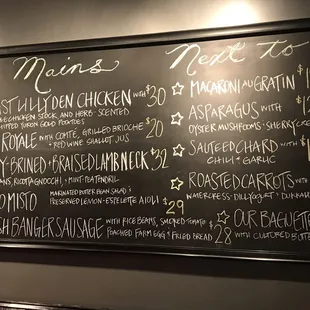 Mains
ST LILLYDEN CHICKEN WITH $30
CHICKEN STOCK AND HERB-SCENTED
WHIPPED YUKON GOLD POTATOES
ROYALE WITH COMTÉ, GRILLED BRIOCHE $20
+ RED WINE SHALLOT JUS
Y-BRINED + BRAISED LAMB NECK $32
RICOTTA GNOCCHI, MINT-PEA TENDRIL
O MISTO MARINATED BUTTER BEAN SALAD, $29
PRESERVED LEMON-ESPELETTE AIOLI
SH BANGER SAUSAGE WITH RICE BEANS, SMOKED TOMATO $28
POACHED FARM EGG + FRIED BREAD
Next to
☆ MACARONI AU GRATIN $1
☆ ASPARAGUS WITH
OYSTER MUSHROOMS + SHERRY
☆ SAUTÉED CHARD WITH $1
CHILI + GARLIC
☆ ROASTED CARROTS WITH
WATERCRESS-DILL YOGURT +
☆ OUR BAGUETTE
WITH CULTURED BUTTE